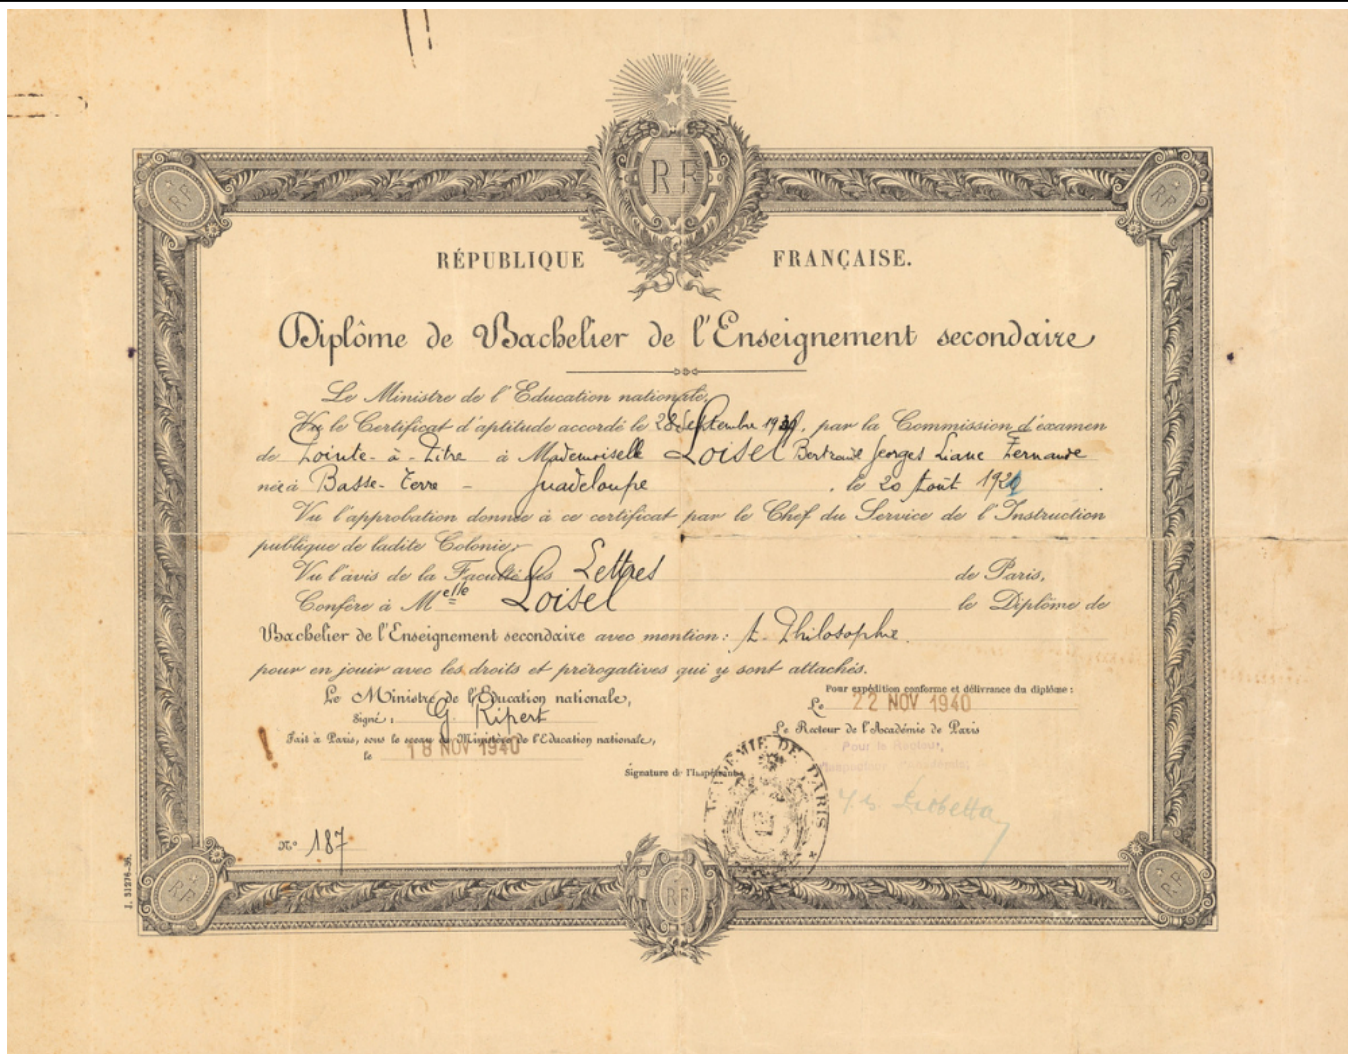 RF
RF RF
RÉPUBLIQUE FRANÇAISE.
Diplôme de Bachelier de l'Enseignement secondaire
Le Ministre de l'Education nationale,
Vu le Certificat d'aptitude accordé le 28 Septembre, par la Commission d'examen
de Pointe-à-Pitre à Mademoiselle Loisel Bertrande Georges Liane Fernande
née à Basse-Terre - Guadeloupe, le 20 Août
Vu l'approbation donnée à ce certificat par le Chef du Service de l'Instruction
publique de ladite Colonie;
Vu l'avis de la Faculté des Lettres de Paris,
Confère à Melle Loisel le Diplôme de
Bachelier de l'Enseignement secondaire avec mention: Philosophie.
pour en jouir avec les droits et prérogatives qui y sont attachés.
Le Ministre de l'Education nationale,
Signé: G. Ripert
Fait à Paris, sous le sceau du Ministère de l'Education nationale,
le 18 NOV 1940
Pour expédition conforme et délivrance du diplôme:
Le 22 NOV 1940
Le Recteur de l'Académie de Paris
Pour le Recteur,
Signature de l'Impétrant,
ACADEMIE DE PARIS
No 187
J. 31276-39.
RF RF RF